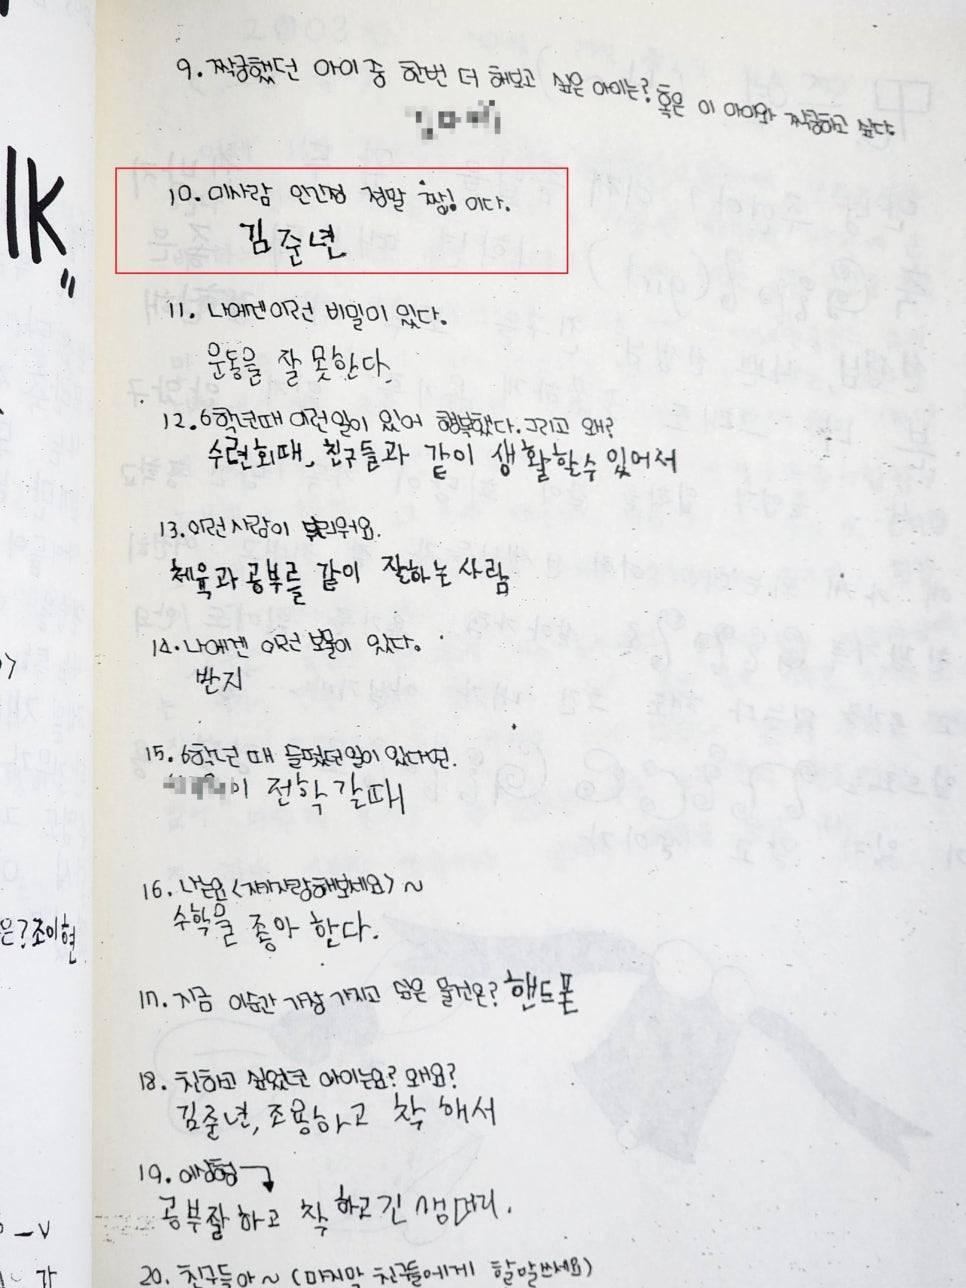 9. 짝궁했던 아이중 한번 더 해보고 싶은 아이는? 혹은 이 아이와 짝궁하고 싶다.
10. 이사람 인간정 정말 짱! 이다.
김준년
11. 나에겐 이런 비밀이 있다.
운동을 잘 못한다.
12. 6학년때 이런일이 있어 행복했다. 그리고 왜?
수련회때, 친구들과 같이 생활할수 있어서
13. 이런사람이 부러워요.
체육과 공부를 같이 잘하는 사람
14. 나에겐 이런 보물이 있다.
반지
15. 6학년 때 슬펐던일이 있다면.
이 전학갈때
16. 나는요 <자기자랑해보세요> ~
수학을 좋아 한다.
17. 지금 이순간 가장 가지고 싶은 물건은? 핸드폰
18. 친하고 싶었던 아이는요? 왜요?
김준년, 조용하고 착해서
19. 이상형
공부잘하고 착하고 긴 생머리.
20. 친구들아 ~ (마지막 친구들에게 할말쓰세요)
lk
은? 조이현